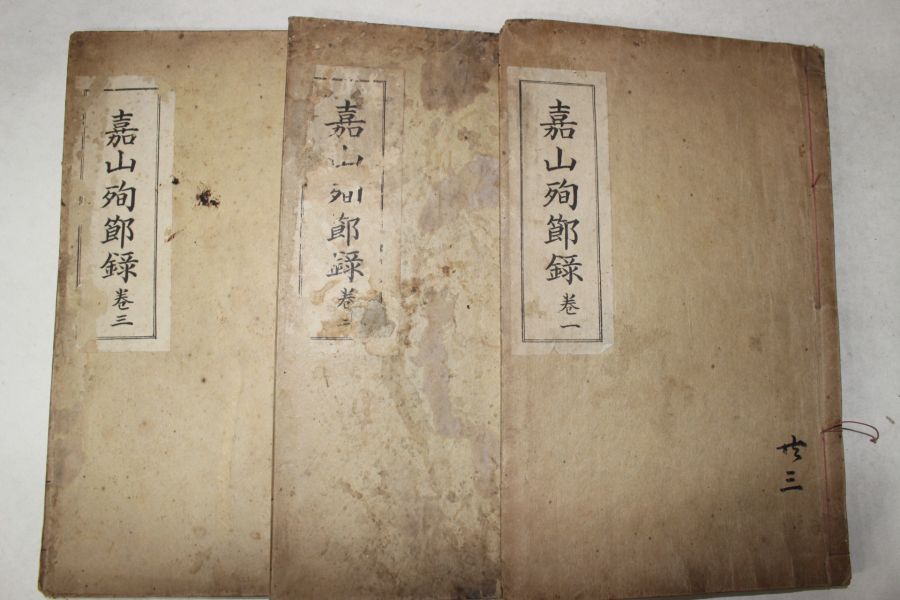 嘉山殉節錄 卷一
共三
嘉山殉節錄 卷二
嘉山殉節錄 卷三